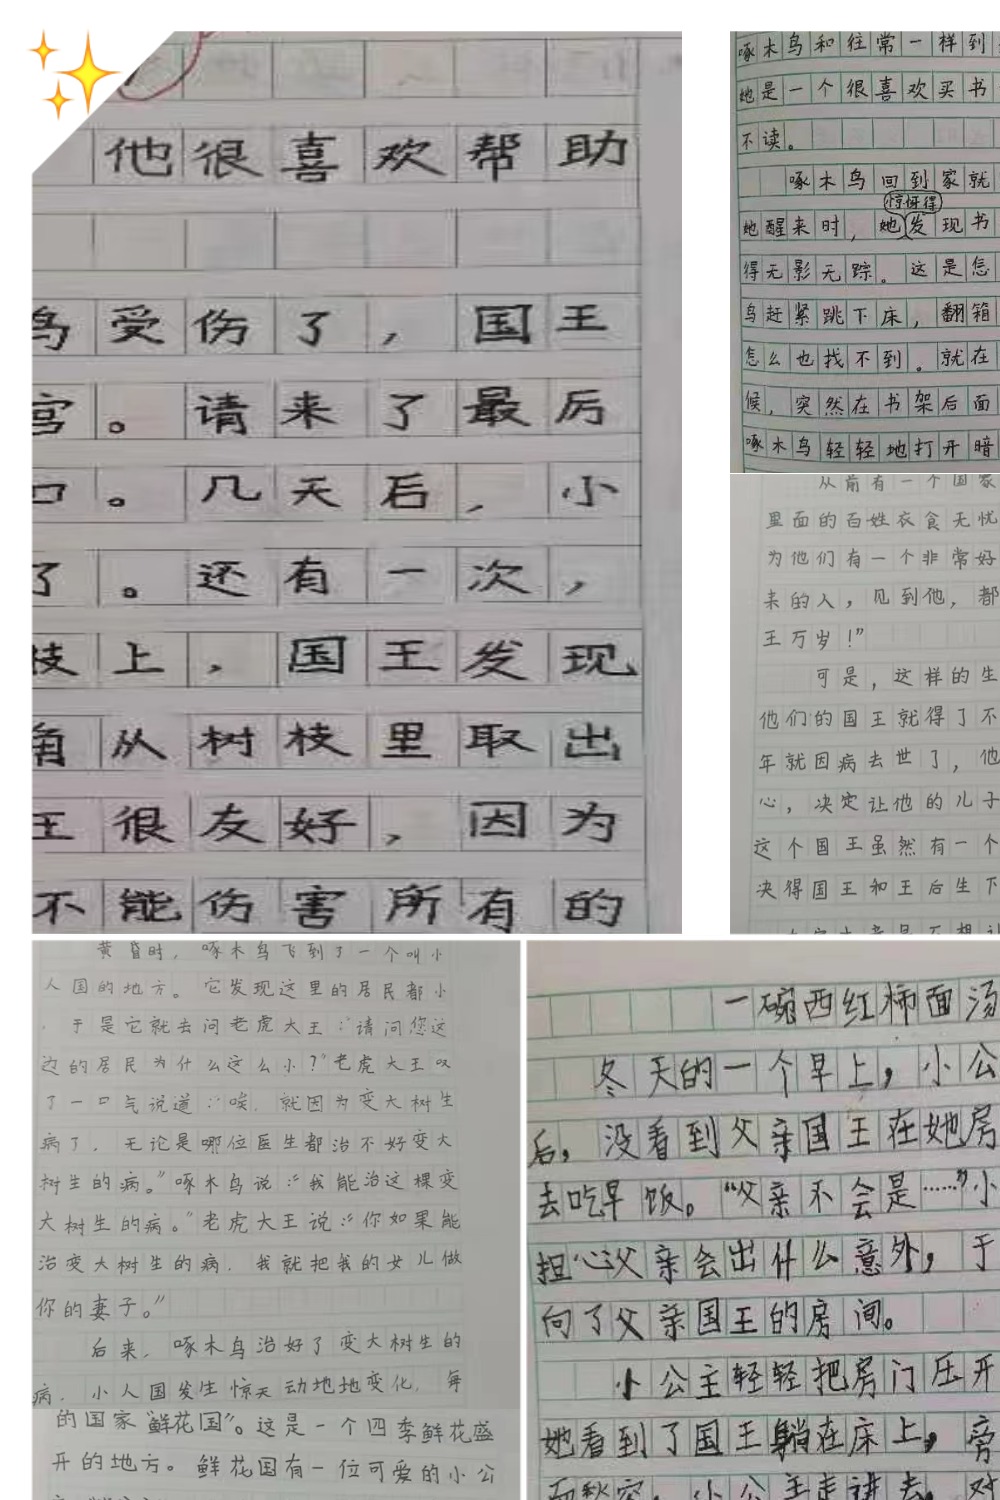 他很喜欢帮助
鸟受伤了，国王
宫。请来了最厉
口。几天后，小
了。还有一次，
枝上，国王发现
角从树枝里取出
王很友好，因为
不能伤害所有的
啄木鸟和往常一样到
她是一个很喜欢买书
不读。
啄木鸟回到家就
惊讶得
她醒来时，她发现书
得无影无踪。这是怎
鸟赶紧跳下床，翻箱
怎么也找不到。就在
候，突然在书架后面
啄木鸟轻轻地打开暗
从前有一个国家
里面的百姓衣食无忧
为他们有一个非常好
来的人，见到他，都
王万岁！”
可是，这样的生
他们的国王就得了不
年就因病去世了，他
心，决定让他的儿子
这个国王虽然有一个
决得国王和王后生下
黄昏时，啄木鸟飞到了一个叫小
人国的地方。它发现这里的居民都小
，于是它就去问老虎大王：“请问您这
边的居民为什么这么小？”老虎大王叹
了一口气说道：“唉，就因为变大树生
病了，无论是哪位医生都治不好变大
树生的病。”啄木鸟说：“我能治这棵变
大树生的病。”老虎大王说：“你如果能
治变大树生的病，我就把我的女儿做
你的妻子。”
后来，啄木鸟治好了变大树生的
病，小人国发生惊天动地地变化，每
的国家“鲜花国”。这是一个四季鲜花盛
开的地方。鲜花国有一位可爱的小公
一碗西红柿面汤
冬天的一个早上，小公
后，没看到父亲国王在她房
去吃早饭。“父亲不会是……”小
担心父亲会出什么意外，于
向了父亲国王的房间。
小公主轻轻把房门压开
她看到了国王躺在床上，旁
小公主走进去，对